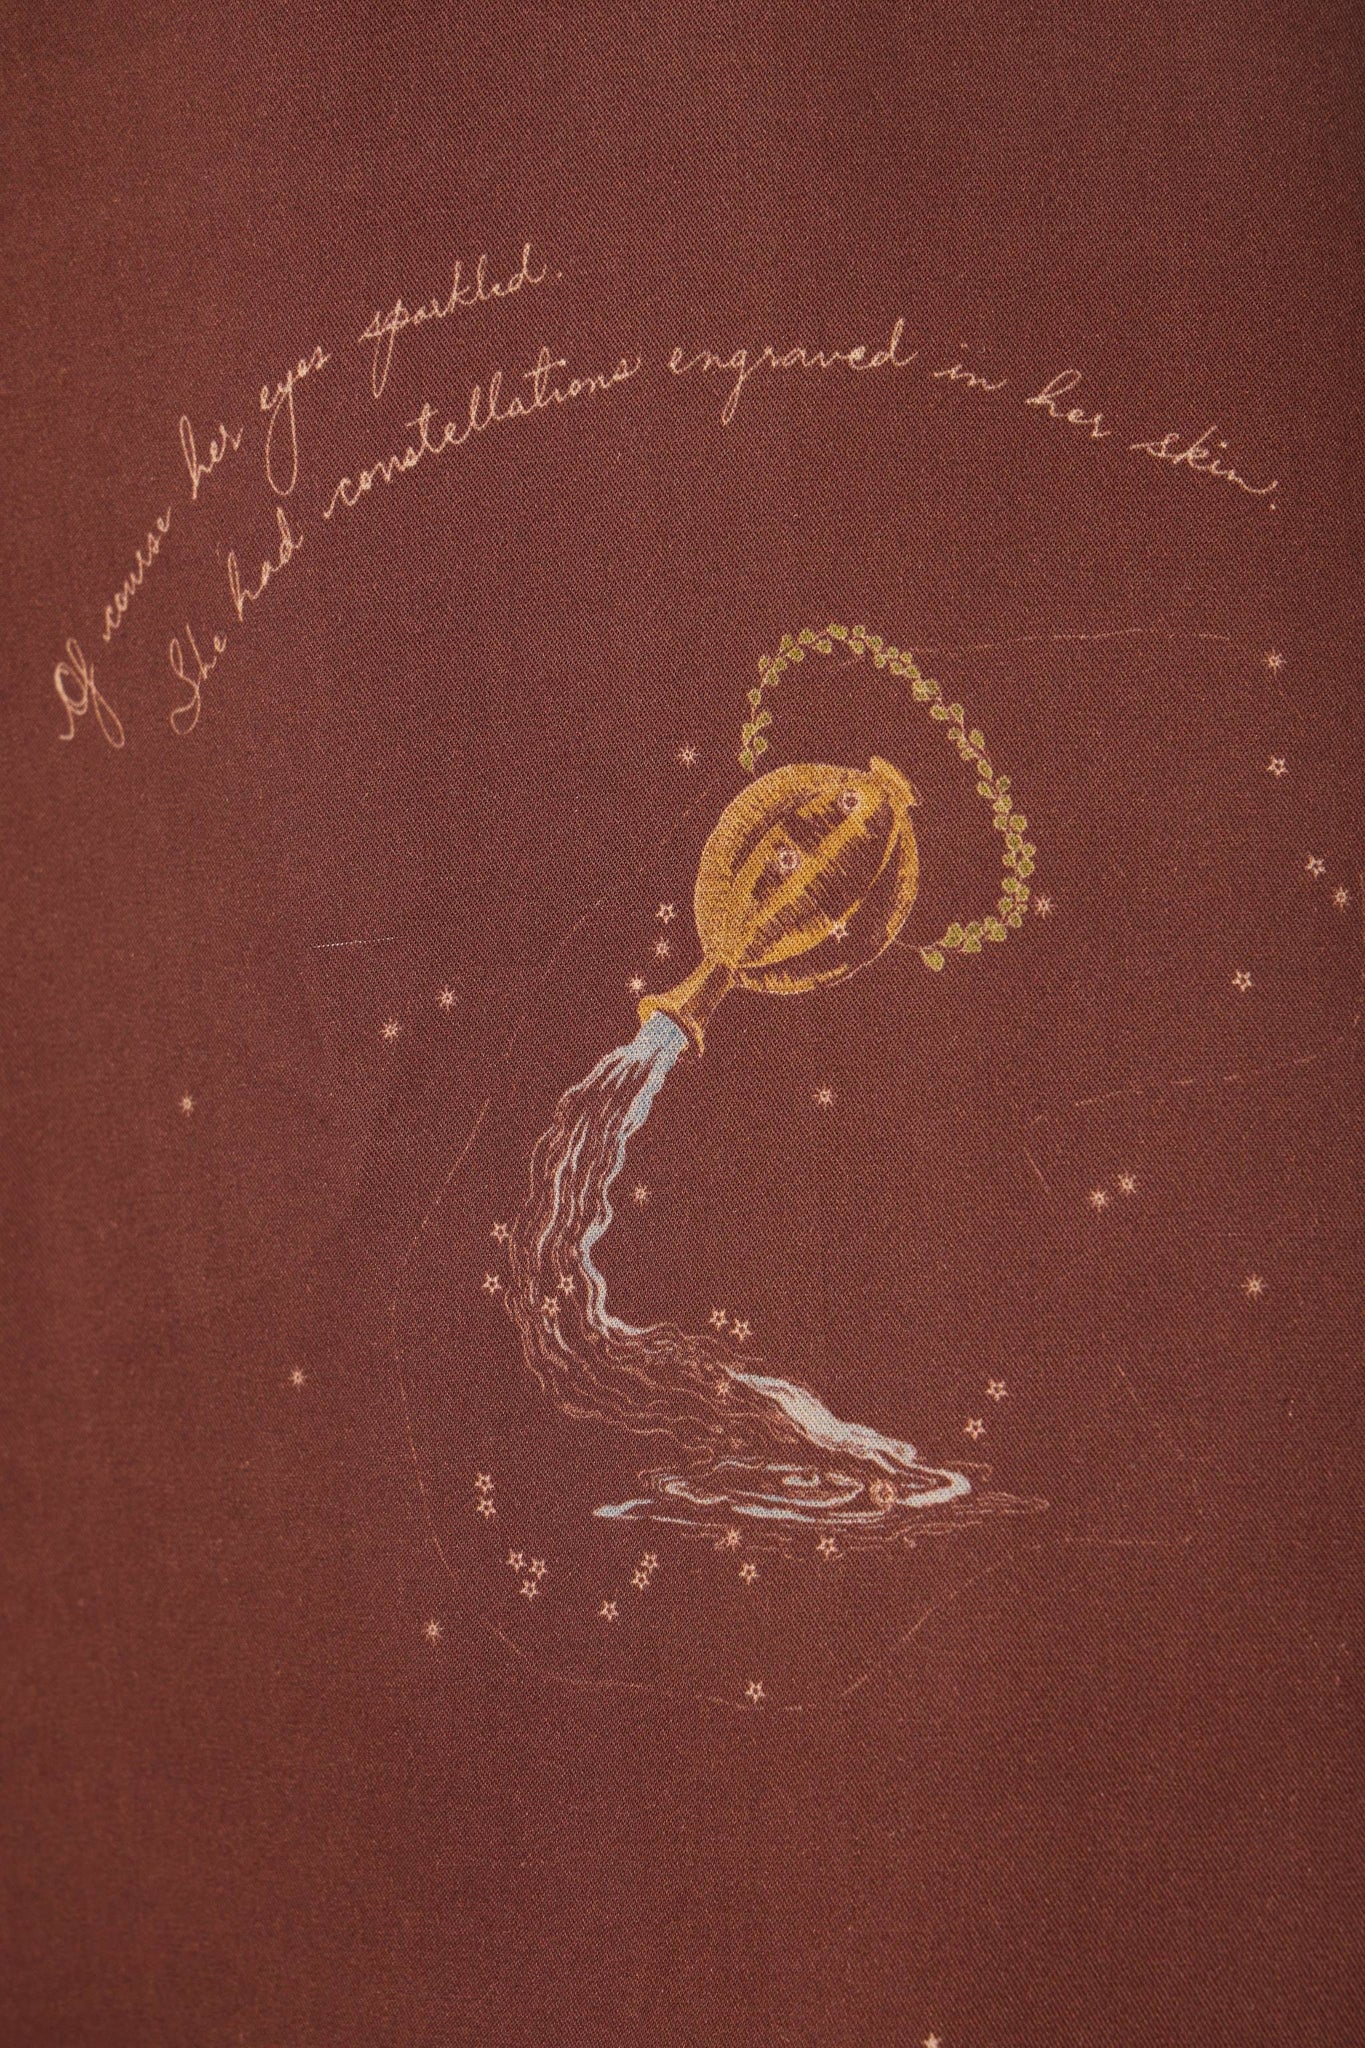 Of course her eyes sparkled.
She had constellations engraved in her skin.